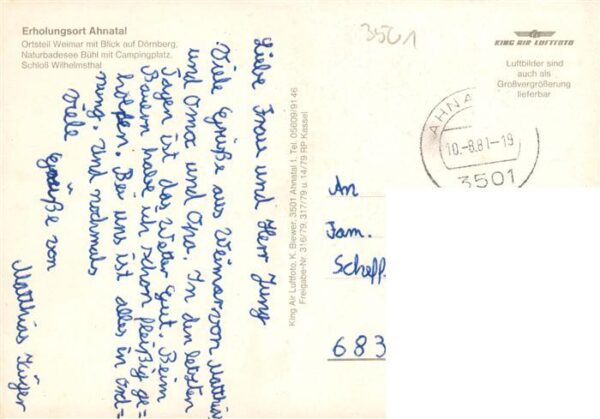 Erholungsort Ahnatal
Ortsteil Weimar mit Blick auf Dörnberg,
Naturbadesee Bühl mit Campingplatz,
Schloß Wilhelmsthal
3501
KING AIR LUFTFOTO
Luftbilder sind
auch als
Großvergrößerung
lieferbar
AHNA
10.-8.81-19
3501
Liebe Frau und Herr Jung
Viele Grüße aus Weimar von Matthias
und Oma und Opa. In den letzten
Tagen ist das Wetter gut. Beim
Bauern habe ich schon fleißig ge=
holfen. Bei uns ist alles in Ord=
nung. Und nochmals
viele Grüße von
Matthias
King Air Luftfoto, K. Biewer, 3501 Ahnatal 1, Tel. 05609/9146
Freigabe-Nr. 316/79, 317/79 u. 14/79 RP Kassel
An
Fam.
Scheff
683